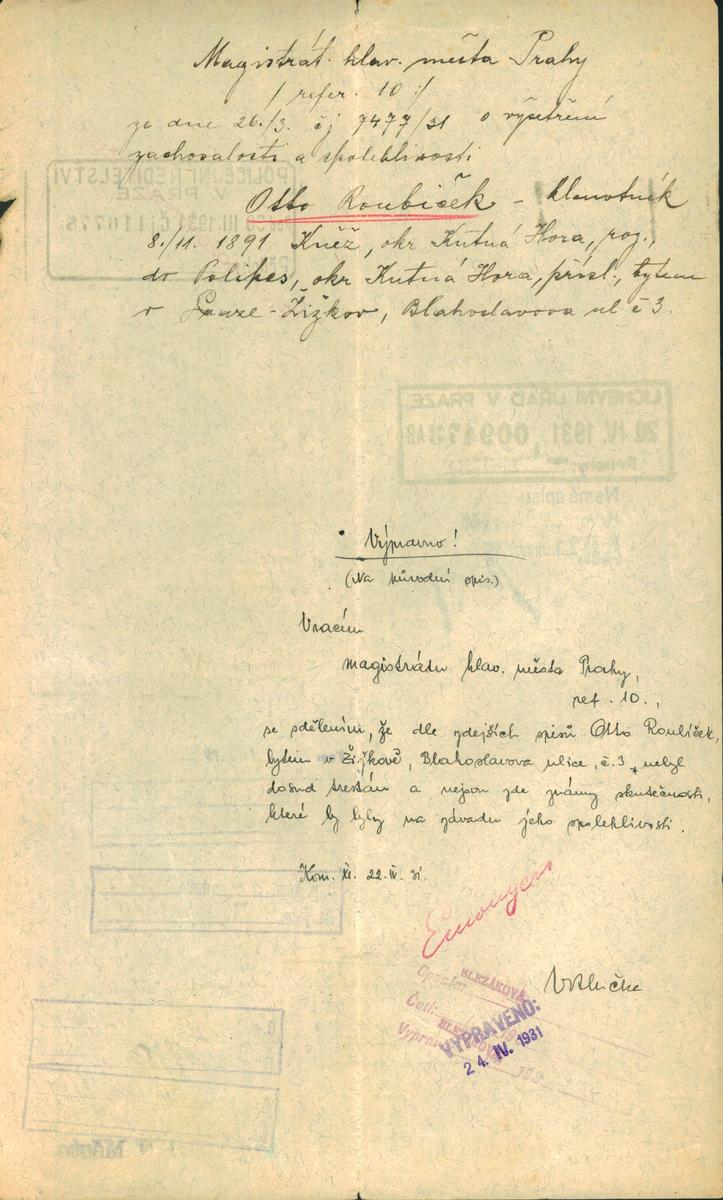 Magistrát hlav. města Prahy
/ refer. 10 /
ze dne 26./3. čj 7477/31 o vyšetření
zachovalosti a spolehlivosti
Otto Roubíček - klenotník
8./11. 1891 Kněž, okr Kutná Hora, roz.,
do Polipes, okr Kutná Hora, přísl., bytem
v Praze-Žižkov, Blahoslavova ul č 3.
POLICEJNÍ ŘEDITELSTVÍ
V PRAZE
30 III. 1931
V PRAZE
20 IV. 1931 009473AB
Přílohy:
Nemá spisu
Výpravno!
(Na původní spis.)
Vracím
magistrátu hlav. města Prahy,
ref. 10.,
se sdělením, že dle zdejších spisů Otto Roubíček,
bytem v Žižkově, Blahoslavova ulice, č. 3, nebyl
dosud trestán a nejsou zde známy skutečnosti,
které by byly na závadu jeho spolehlivosti.
Kom. XI. 22. IV. 31.
Opsala: SLEZÁKOVÁ
Četl:
Vyprav
VYPRAVENO:
24. IV. 1931